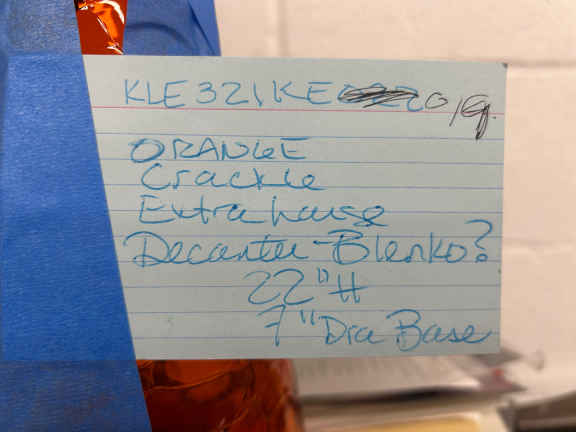 KLE321KE
ORANGE
Crackle
Extra large
Decanter-Blenko?
22"H
7" Dia Base